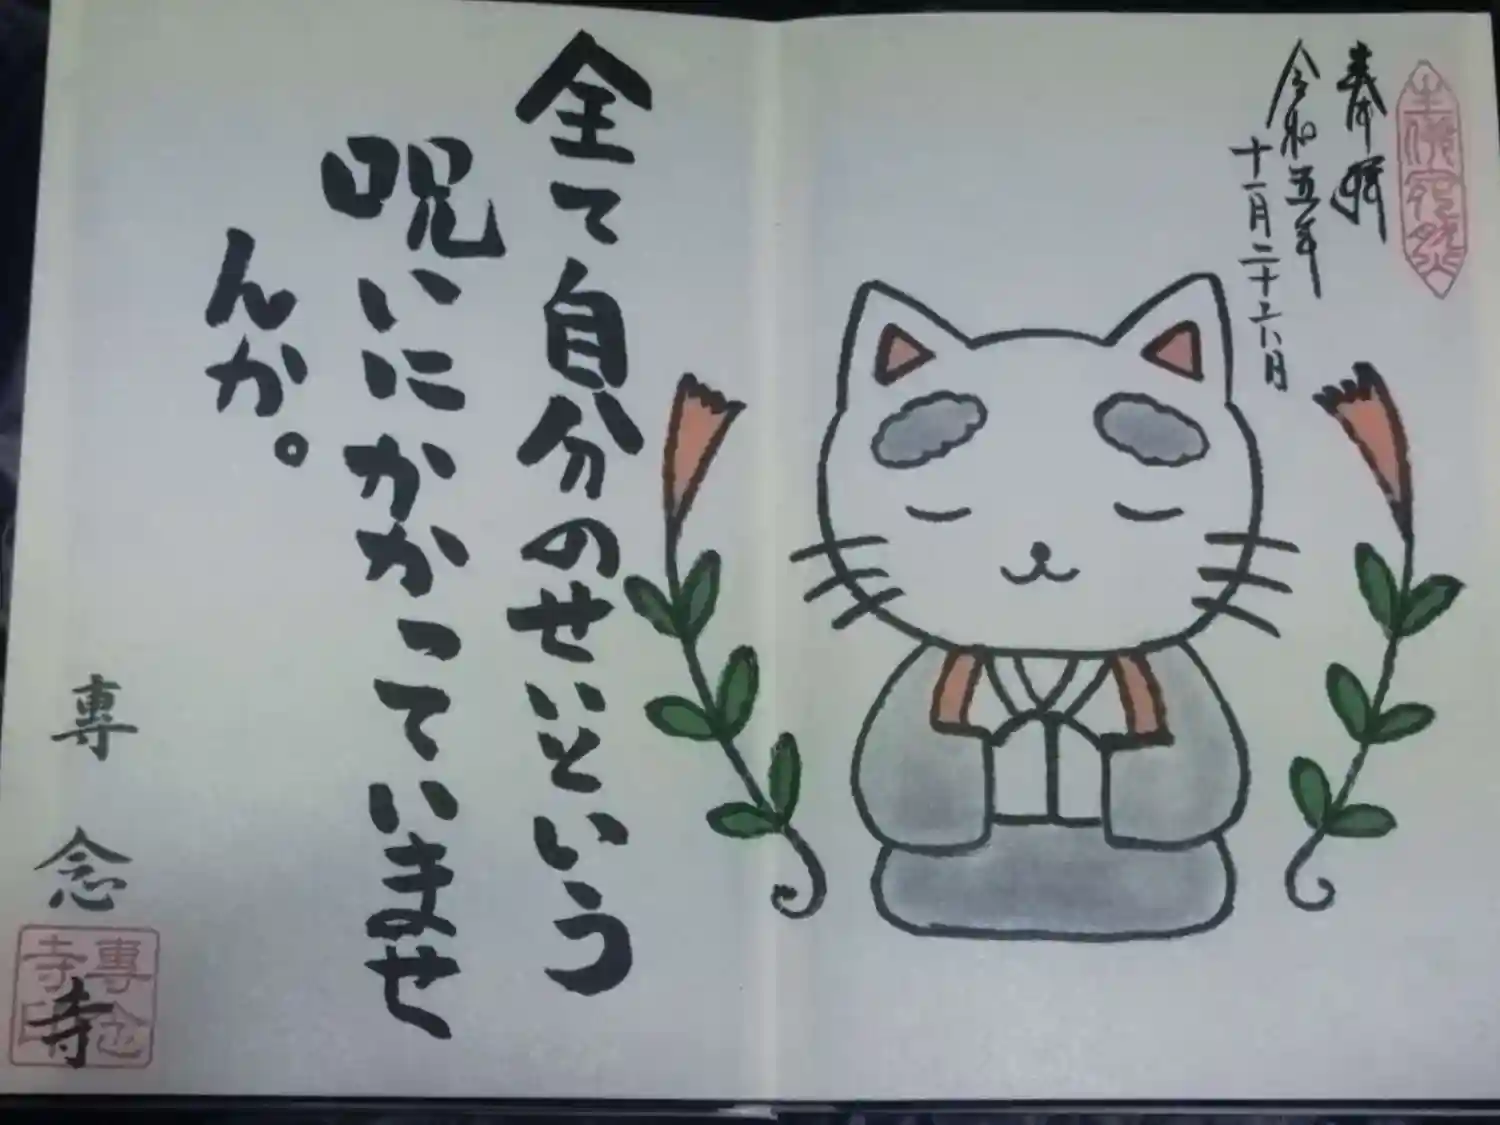 奉拝
令和五年
十一月二十六日
全て自分のせいという
呪いにかかっていませ
んか。
専念寺
専念
寺印